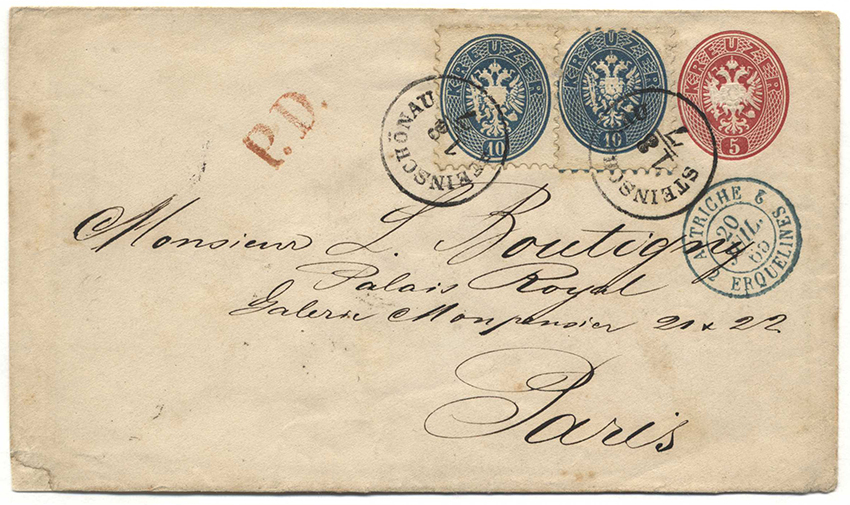 KREUZER
10
KREUZER
10
KREUZER
5
P.D.
STEINSCHÖNAU
STEINSCH
AUTRICHE
20
JUIL.
65
ERQUELINES
Monsieur L. Boutigny
Palais Royal
Galerie Monpensier 21 & 22
Paris